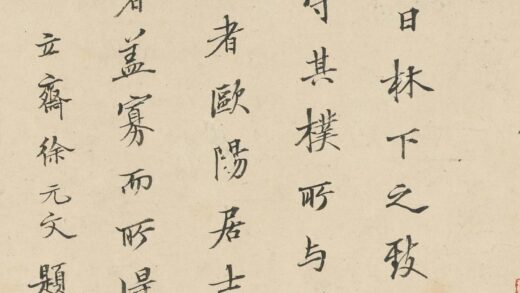 日林下之致
守其樸所与
者歐陽居士
者蓋寡而所得
立齋徐元文題